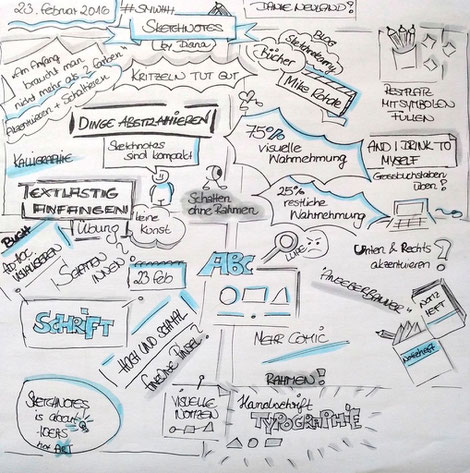 23. Februar 2016
#SNWHH
DANKE NEULAND?
SKETCHNOTES
by Diana
"Am Anfang
braucht man
nicht mehr als 2 Farben"
Akzentuieren & Schattieren
KRITZELN TUT GUT
BLOG
Bücher
Mike Rohde
RESTPLATZ
MIT SYMBOLEN
FÜLLEN
DINGE ABSTRAHIEREN
Sketchnotes
sind kompakt
75%
visuelle
Wahrnehmung
AND I DRINK TO
MYSELF
Grossbuchstaben
üben?
KALLIGRAPHIE
TEXTLASTIG
ANFANGEN!
Übung
keine
Kunst
Schatten
ohne Rahmen
25%
restliche
Wahrnehmung
BUCH
AD HOC
VISUALISIEREN
SCHATTEN
INNEN?
23 Feb
ABC
LUPE
Unten & Rechts
akzentuieren?
NOTIZ
HEFT
SCHRIFT
HOCH UND SCHMAL
PINSEL?
MEHR COMIC
RAHMEN!
Notizheft
SKETCHNOTES
is about
IDEAS
not ART
VISUELLE
NOTIZEN
Handschrift
TYPOGRAPHIE